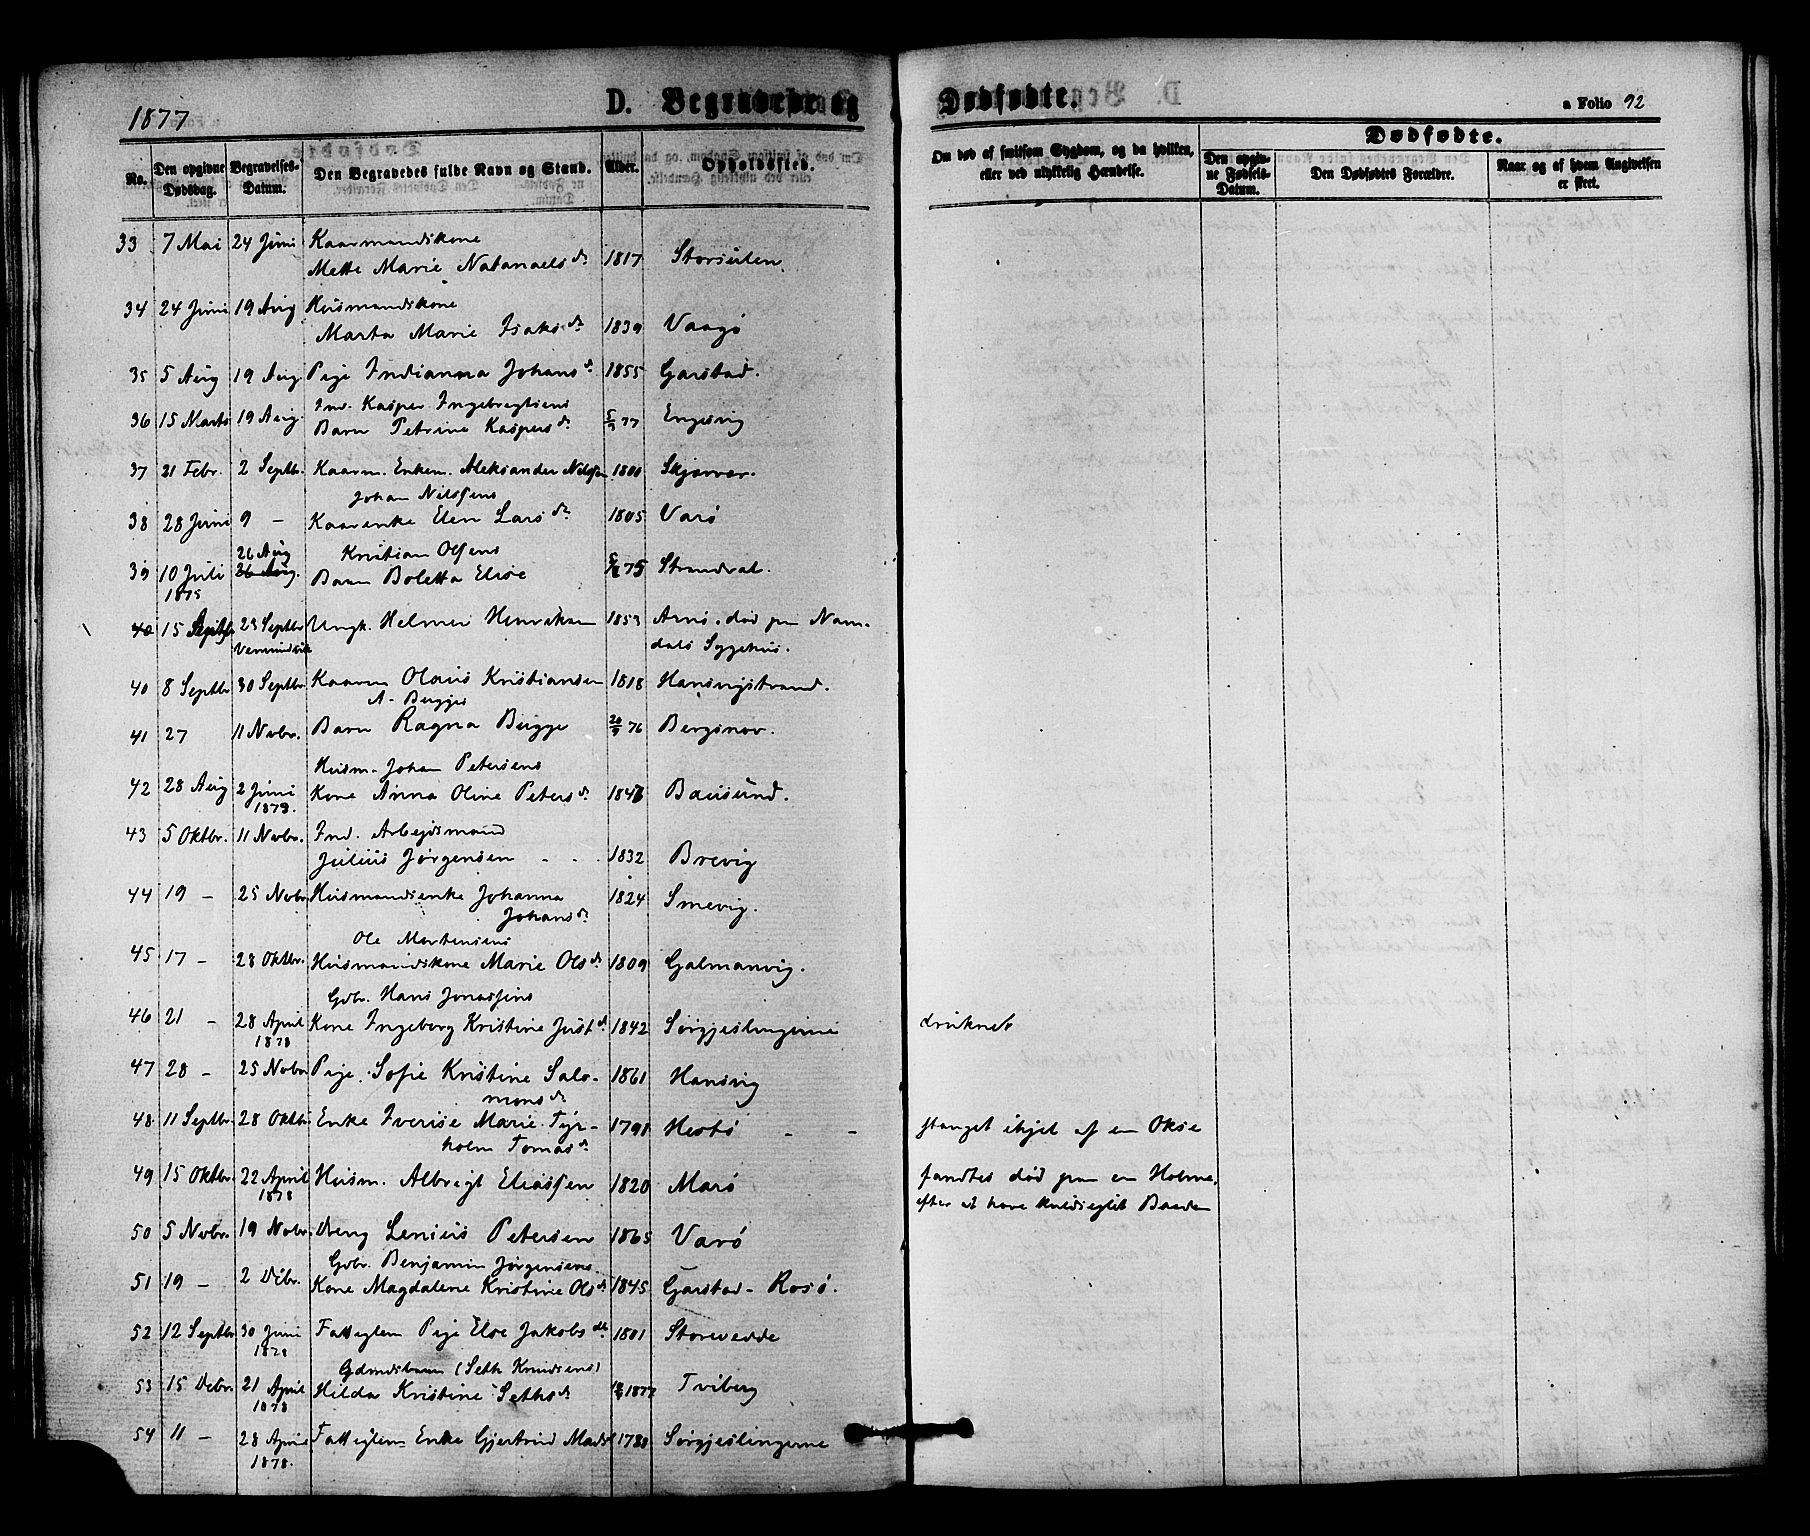 1877
D. Begravede og Dødfødte.
a Folio 92
No.
Den opgivne Dødsdag.
Begravelses-Datum.
Den Begravedes fulde Navn og Stand.
Alder.
Opholdssted.
Om død af smitsom Sygdom, og da hvilken, eller ved ulykkelig Hændelse.
Dødfødte.
Den opgivne Fødsels-Datum.
Den Dødfødtes Forældre.
Naar og af hvem Angivelsen er skeet.
33 7 Mai 24 Juni Kaarmandskone
Mette Marie Natanaelsdr 1817 Storsulen
34 24 Juni 19 Aug Husmandskone
Marta Marie Isaksdr 1839 Vaagø
35 5 Aug 19 Aug Pige Indianna Johansdr 1855 Garstad.
Ind. Kasper Ingebregtsens
36 15 Marts 19 Aug. Barn Petrine Kaspersdr 77 Engesvig
37 21 Febr. 2 Septbr. Kaarm. Enkem. Aleksander Nilssen 1800 Skjærvær.
Johan Nilssens
38 28 Juni 9 - Kaarenke Elen Larsdr 1805 Varø
26 Aug Kristian Olsens
39 10 Juli 26 Aug. Barn Boletta Elise 75 Strandval.
1875
40 15 Septbr 23 Septbr Ungk. Helmer Henriksen 1853 Arnø. død paa Nam-
Vemundvik dals Sygehus.
40 8 Septbr 30 Septbr Kaarm Olaus Kristiansen 1818 Hansvigstrand.
A. Bugges
41 27 11 Novbr. Barn Ragna Bugge 76 Bergsnov.
Husm. Johan Petersens
42 28 Aug 2 Juni Kone Anna Oline Petersdr Bausund.
43 5 Oktbr. 11 Novbr. Ind. Arbejdsmand
Julius Jørgensen - - 1832 Brevig
44 19 - 25 Novbr Husmandsenke Johanna 1824 Smevig.
Johansdr
Ole Martensens
45 17 - 28 Oktbr. Husmandskone Marie Olsdr 1809 Galmanvig.
Gdbr. Hans Jonassens
46 21 - 28 April Kone Ingeborg Kristine Justdr 1842 Sørgjeslingerne druknet
1878
47 28 - 25 Novbr Pige Sofie Kristine Salo- 1861 Hansvig
monsdr
48 11 Septbr. 28 Oktbr. Enke Iverise Marie Tyr- 1791 Hestø - - stanget ihjel af en Okse
holm Tomasdr
49 15 Oktbr. 22 April Husm. Albrigt Eliassen 1820 Marø fandtes død paa en Holme,
1878 efter at have kuldseglet Baaden
50 5 Novbr. 19 Novbr. Dreng Lenius Petersen 1865 Varø
Gdbr. Benjamin Jørgensens
51 19 - 2 Debr. Kone Magdalene Kristine Olsdr 1845 Garstad - Rosø.
52 12 Septbr 30 Juni Fattiglem Pige Eloe Jakobsdr 1801 Storevedde
1878
Gdmdsbarn (Seth Knudsens)
53 15 Debr. 21 April Hilda Kristine Sethsdr 1877 Tviberg
1878
54 11 - 28 April Fattiglem Enke Gjertrud Mads Sørgjeslingerne
1878.